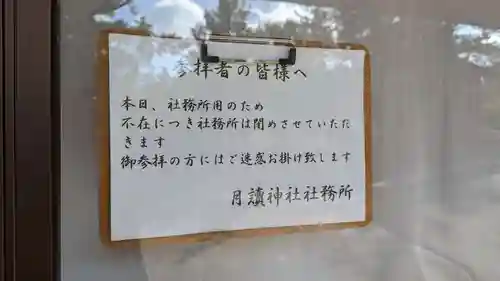 参拝者の皆様へ
本日、社務所用のため
不在につき社務所は閉めさせていただ
きます
御参拝の方にはご迷惑お掛け致します
月讀神社社務所